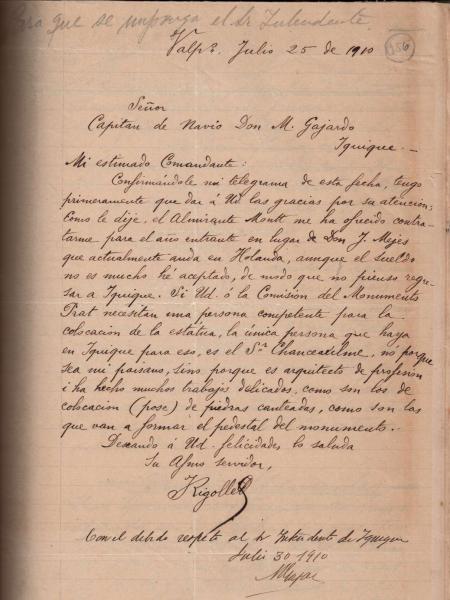 Para que se imponga el Sr Intendante.
Valpo. Julio 25 de 1910
356
Señor
Capitan de Navio Don M. Gajardo
Iquique. —
Mi estimado Comandante:
Confirmándole mi telegrama de esta fecha, tengo
primeramente que dar á Ud las gracias por su atencion;
como le dije, el Almirante Montt me ha ofrecido contra-
tarme para el año entrante en lugar de Don J. Mejes
que actualmente anda en Holanda, aunque el sueldo
no es mucho hé aceptado, de modo que no pienso regre-
sar a Iquique. Si Ud. ó la Comision del Monumento
Prat necesitan una persona competente para la
colocacion de la estatua, la única persona que haya
en Iquique para eso, es el Sr. Chanceaulme, no porque
sea mi paisano, sino porque es arquitecto de profesion
i ha hecho muchos trabajos delicados, como son los de
colocacion (pose) de piedras canteadas, como son las
que van a formar el pedestal del monumento.
Deseando á Ud. felicidades lo saluda
Su Afmo servidor,
Rigollet
Con el debido respeto al Sr Intendente de Iquique
Julio 30 1910